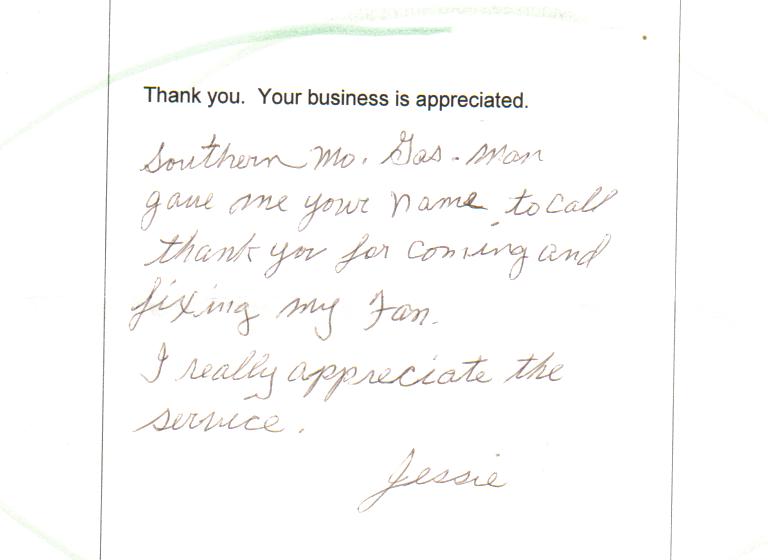 Thank you. Your business is appreciated.
Southern Mo. Gas-man
gave me your name to call
thank you for coming and
fixing my Fan.
I really appreciate the
service.
Jessie